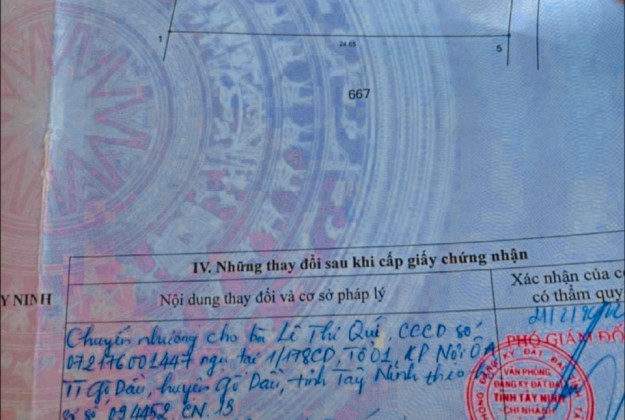 1
24.65
5
667
IV. Những thay đổi sau khi cấp giấy chứng nhận
Y NINH
Nội dung thay đổi và cơ sở pháp lý
Xác nhận của c
có thẩm quy
Chuyển nhường cho bà Lê Thị Quí, CCCD số
072176001447 ngụ tại 1/178CD, Tổ 01, KP Nội Ô A
TT Gò Dầu, huyện Gò Dầu, tỉnh Tây Ninh theo
số 094452.CN.13
PHÓ GIÁM ĐỐ
KÝ ĐẤT Đ
VĂN PHÒNG
ĐĂNG KÝ ĐẤT ĐAI
TỈNH TÂY NINH
CHI NHÁNH